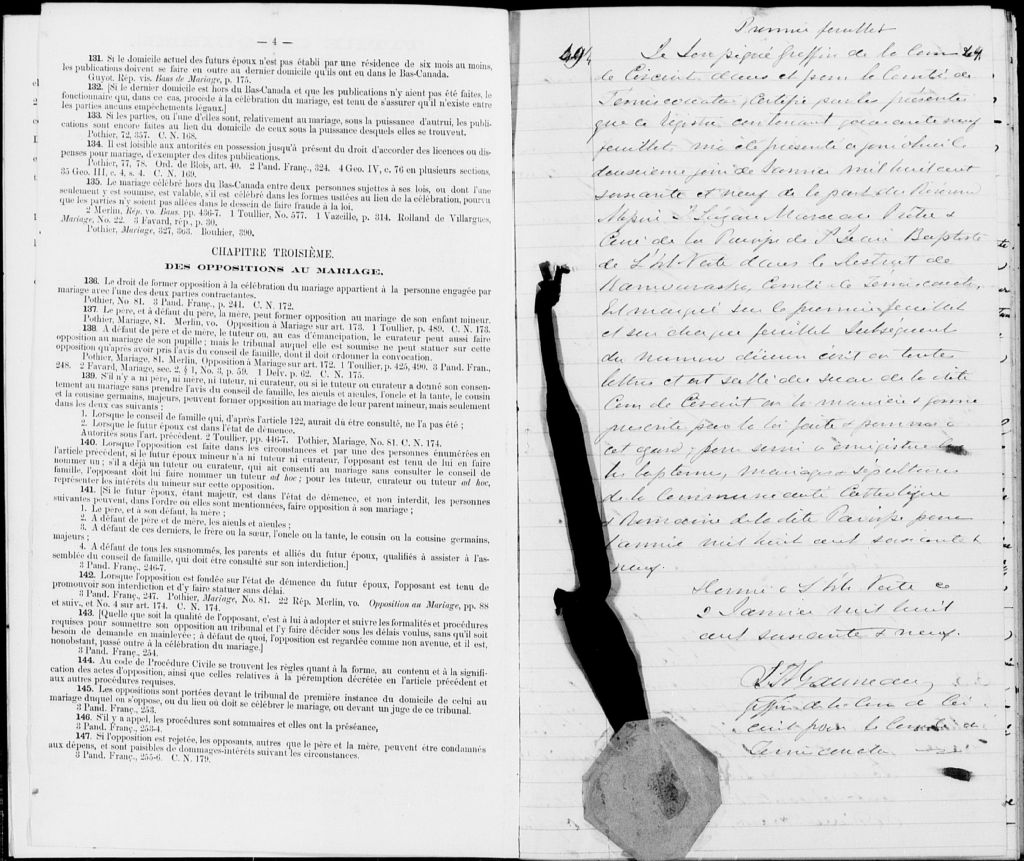 — 4 —
131. Si le domicile actuel des futurs époux n'est pas établi par une résidence de six mois au moins,
les publications doivent se faire en outre au dernier domicile qu'ils ont eu dans le Bas-Canada.
Guyot, Rép. vis. Bans de Mariage, p. 175.
132. [Si le dernier domicile est hors du Bas-Canada et que les publications n'y aient pas été faites, le
fonctionnaire qui, dans ce cas, procède à la célébration du mariage, est tenu de s'assurer qu'il n'existe entre
les parties aucuns empêchements légaux.]
133. Si les parties, ou l'une d'elles sont, relativement au mariage, sous la puissance d'autrui, les publi-
cations sont encore faites au lieu du domicile de ceux sous la puissance desquels elles se trouvent.
Pothier, 72, 357. C. N. 168.
134. Il est loisible aux autorités en possession jusqu'à présent du droit d'accorder des licences ou dis-
penses pour mariage, d'exempter des dites publications.
Pothier, 77, 78. Ord. de Blois, art. 40. 2 Pand. Franç., 324. 4 Geo. IV, c. 76 en plusieurs sections.
35 Geo. III, c. 4, s. 4. C. N. 169.
135. Le mariage célébré hors du Bas-Canada entre deux personnes sujettes à ses lois, ou dont l'une
seulement y est soumise, est valable, s'il est célébré dans les formes usitées au lieu de la célébration, pourvu
que les parties n'y soient pas allées dans le dessein de faire fraude à la loi.
2 Merlin, Rép. vo. Bans. pp. 436-7. 1 Toullier, No. 577. 1 Vazeille, p. 314. Rolland de Villargues,
Mariage, No. 22. 3 Favard, rép., p. 30.
Pothier, Mariage, 327, 363. Bouhier, 390.
CHAPITRE TROISIÈME.
DES OPPOSITIONS AU MARIAGE.
136. Le droit de former opposition à la célébration du mariage appartient à la personne engagée par
mariage avec l'une des deux parties contractantes.
Pothier, No 81. 3 Pand. Franç., p. 241. C. N. 172.
137. Le père, et à défaut du père, la mère, peut former opposition au mariage de son enfant mineur.
Pothier, Mariage, 81. Merlin, vo. Opposition à Mariage sur art. 173. 1 Toullier, p. 489. C. N. 173.
138. A défaut de père et de mère, le tuteur ou, au cas d'émancipation, le curateur peut aussi faire
opposition au mariage de son pupille; mais le tribunal auquel elle est soumise ne peut statuer sur cette
opposition qu'après avoir pris l'avis du conseil de famille, dont il doit ordonner la convocation.
Pothier, Mariage, 81. Merlin, Opposition à Mariage sur art. 172. 1 Toullier, p. 425, 490. 3 Pand. Fran.,
248. 2 Favard, Mariage, sec. 2, § 1, No. 3, p. 59. 1 Delv. p. 62. C. N. 175.
139. S'il n'y a ni père, ni mère, ni tuteur, ni curateur, ou si le tuteur ou curateur a donné son consen-
tement au mariage sans prendre l'avis du conseil de famille, les aïeuls et aïeules, l'oncle et la tante, le cousin
et la cousine germains, majeurs, peuvent former opposition au mariage de leur parent mineur, mais seulement
dans les deux cas suivants:
1. Lorsque le conseil de famille qui, d'après l'article 122, aurait du être consulté, ne l'a pas été;
2. Lorsque le futur époux est dans l'état de démence.
Autorités sous l'art. précédent. 2 Toullier, pp. 446-7. Pothier, Mariage, No. 81. C. N. 174.
140. Lorsque l'opposition est faite dans les circonstances et par une des personnes énumérées en
l'article précédent, si le futur époux mineur n'a ni tuteur ni curateur, l'opposant est tenu de lui en faire
nommer un; s'il a déjà un tuteur ou curateur, qui ait consenti au mariage sans consulter le conseil de
famille, l'opposant doit lui faire nommer un tuteur ad hoc; pour les tuteur, curateur ou tuteur ad hoc,
représenter les intérêts du mineur sur cette opposition.
141. [Si le futur époux, étant majeur, est dans l'état de démence, et non interdit, les personnes
suivantes peuvent, dans l'ordre où elles sont mentionnées, faire opposition à son mariage;
1. Le père, et à son défaut, la mère;
2. A défaut de père et de mère, les aïeuls et aïeules;
3. A défaut de ces derniers, le frère ou la sœur, l'oncle ou la tante, le cousin ou la cousine germains,
majeurs;
4. A défaut de tous les susnommés, les parents et alliés du futur époux, qualifiés à assister à l'as-
semblée du conseil de famille, qui doit être consulté sur son interdiction.]
3 Pand. Franç., 246-7.
142. Lorsque l'opposition est fondée sur l'état de démence du futur époux, l'opposant est tenu de
promouvoir son interdiction et d'y faire statuer sans délai.
3 Pand. Franç., 247. Pothier, Mariage, No. 81. 22 Rép. Merlin, vo. Opposition au Mariage, pp. 88
et suiv., et No. 4 sur art. 174. C. N. 174.
143. [Quelle que soit la qualité de l'opposant, c'est à lui à adopter et suivre les formalités et procédures
requises pour soumettre son opposition au tribunal et l'y faire décider sous les délais voulus, sans qu'il soit
besoin de demande en mainlevée; à défaut de quoi, l'opposition est regardée comme non avenue, et il est,
nonobstant, passé outre à la célébration du mariage.]
3 Pand. Franç., 254.
144. Au code de Procédure Civile se trouvent les règles quant à la forme, au contenu et à la signifi-
cation des actes d'opposition, ainsi que celles relatives à la péremption décrétée en l'article précédent et
aux autres procédures requises.
145. Les oppositions sont portées devant le tribunal de première instance du domicile de celui au
mariage duquel on s'oppose, ou du lieu où doit se célébrer le mariage, ou devant un juge de ce tribunal.
3 Pand. Franç., 253.
146. S'il y a appel, les procédures sont sommaires et elles ont la préséance,
3 Pand. Franç., 253-4.
147. Si l'opposition est rejetée, les opposants, autres que le père et la mère, peuvent être condamnés
aux dépens, et sont passibles de dommages-intérêts suivant les circonstances.
3 Pand. Franç., 255-6. C. N. 179.
Premier feuillet
Le Soussigné Greffier de la Cour
de Circuit dans et pour le Comté de
Témiscouata, Certifie par les présentes
que ce Régistre contenant quarante neuf
feuillets m'a été présenté ce jourd'hui le
douzième jour de Janvier mil huit cent
soixante et neuf de la part du Révérend
Messire Marceau Prêtre &
Curé de la Paroisse de St Jean Baptiste
de L'Isle Verte dans le District de
Kamouraska, Comté de Témiscouata,
Est marqué sur le premier feuillet
et sur chaque feuillet Subséquent
du numéro d'icelui écrit en toutes
lettres et est scellé du sceau de la dite
Cour de Circuit en la manière & forme
prescrite par la loi faite & pourvue à
cet égard, pour servir à enregistrer
les baptêmes, mariages & sépultures
de la Communauté Catholique
& Romaine de la dite Paroisse pour
l'année mil huit cent soixante &
neuf.
Donné à L'Isle Verte ce
Janvier mil huit
cent soixante & neuf.
greffier de la Cour de Cir
cuit pour le Comté de
Témiscouata